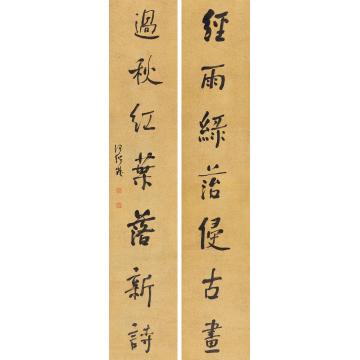 經雨綠菭侵古畫
過秋紅葉落新詩